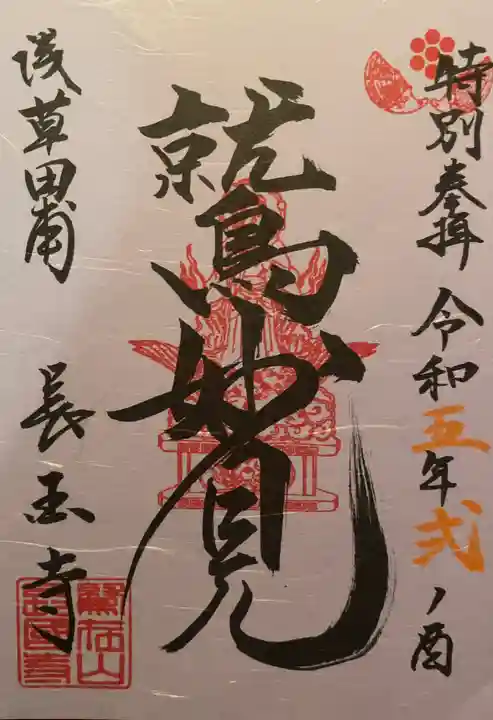 特別奉拝 令和五年弐ノ酉
鷲妙見
浅草田甫 長国寺
鷲在山
長国寺